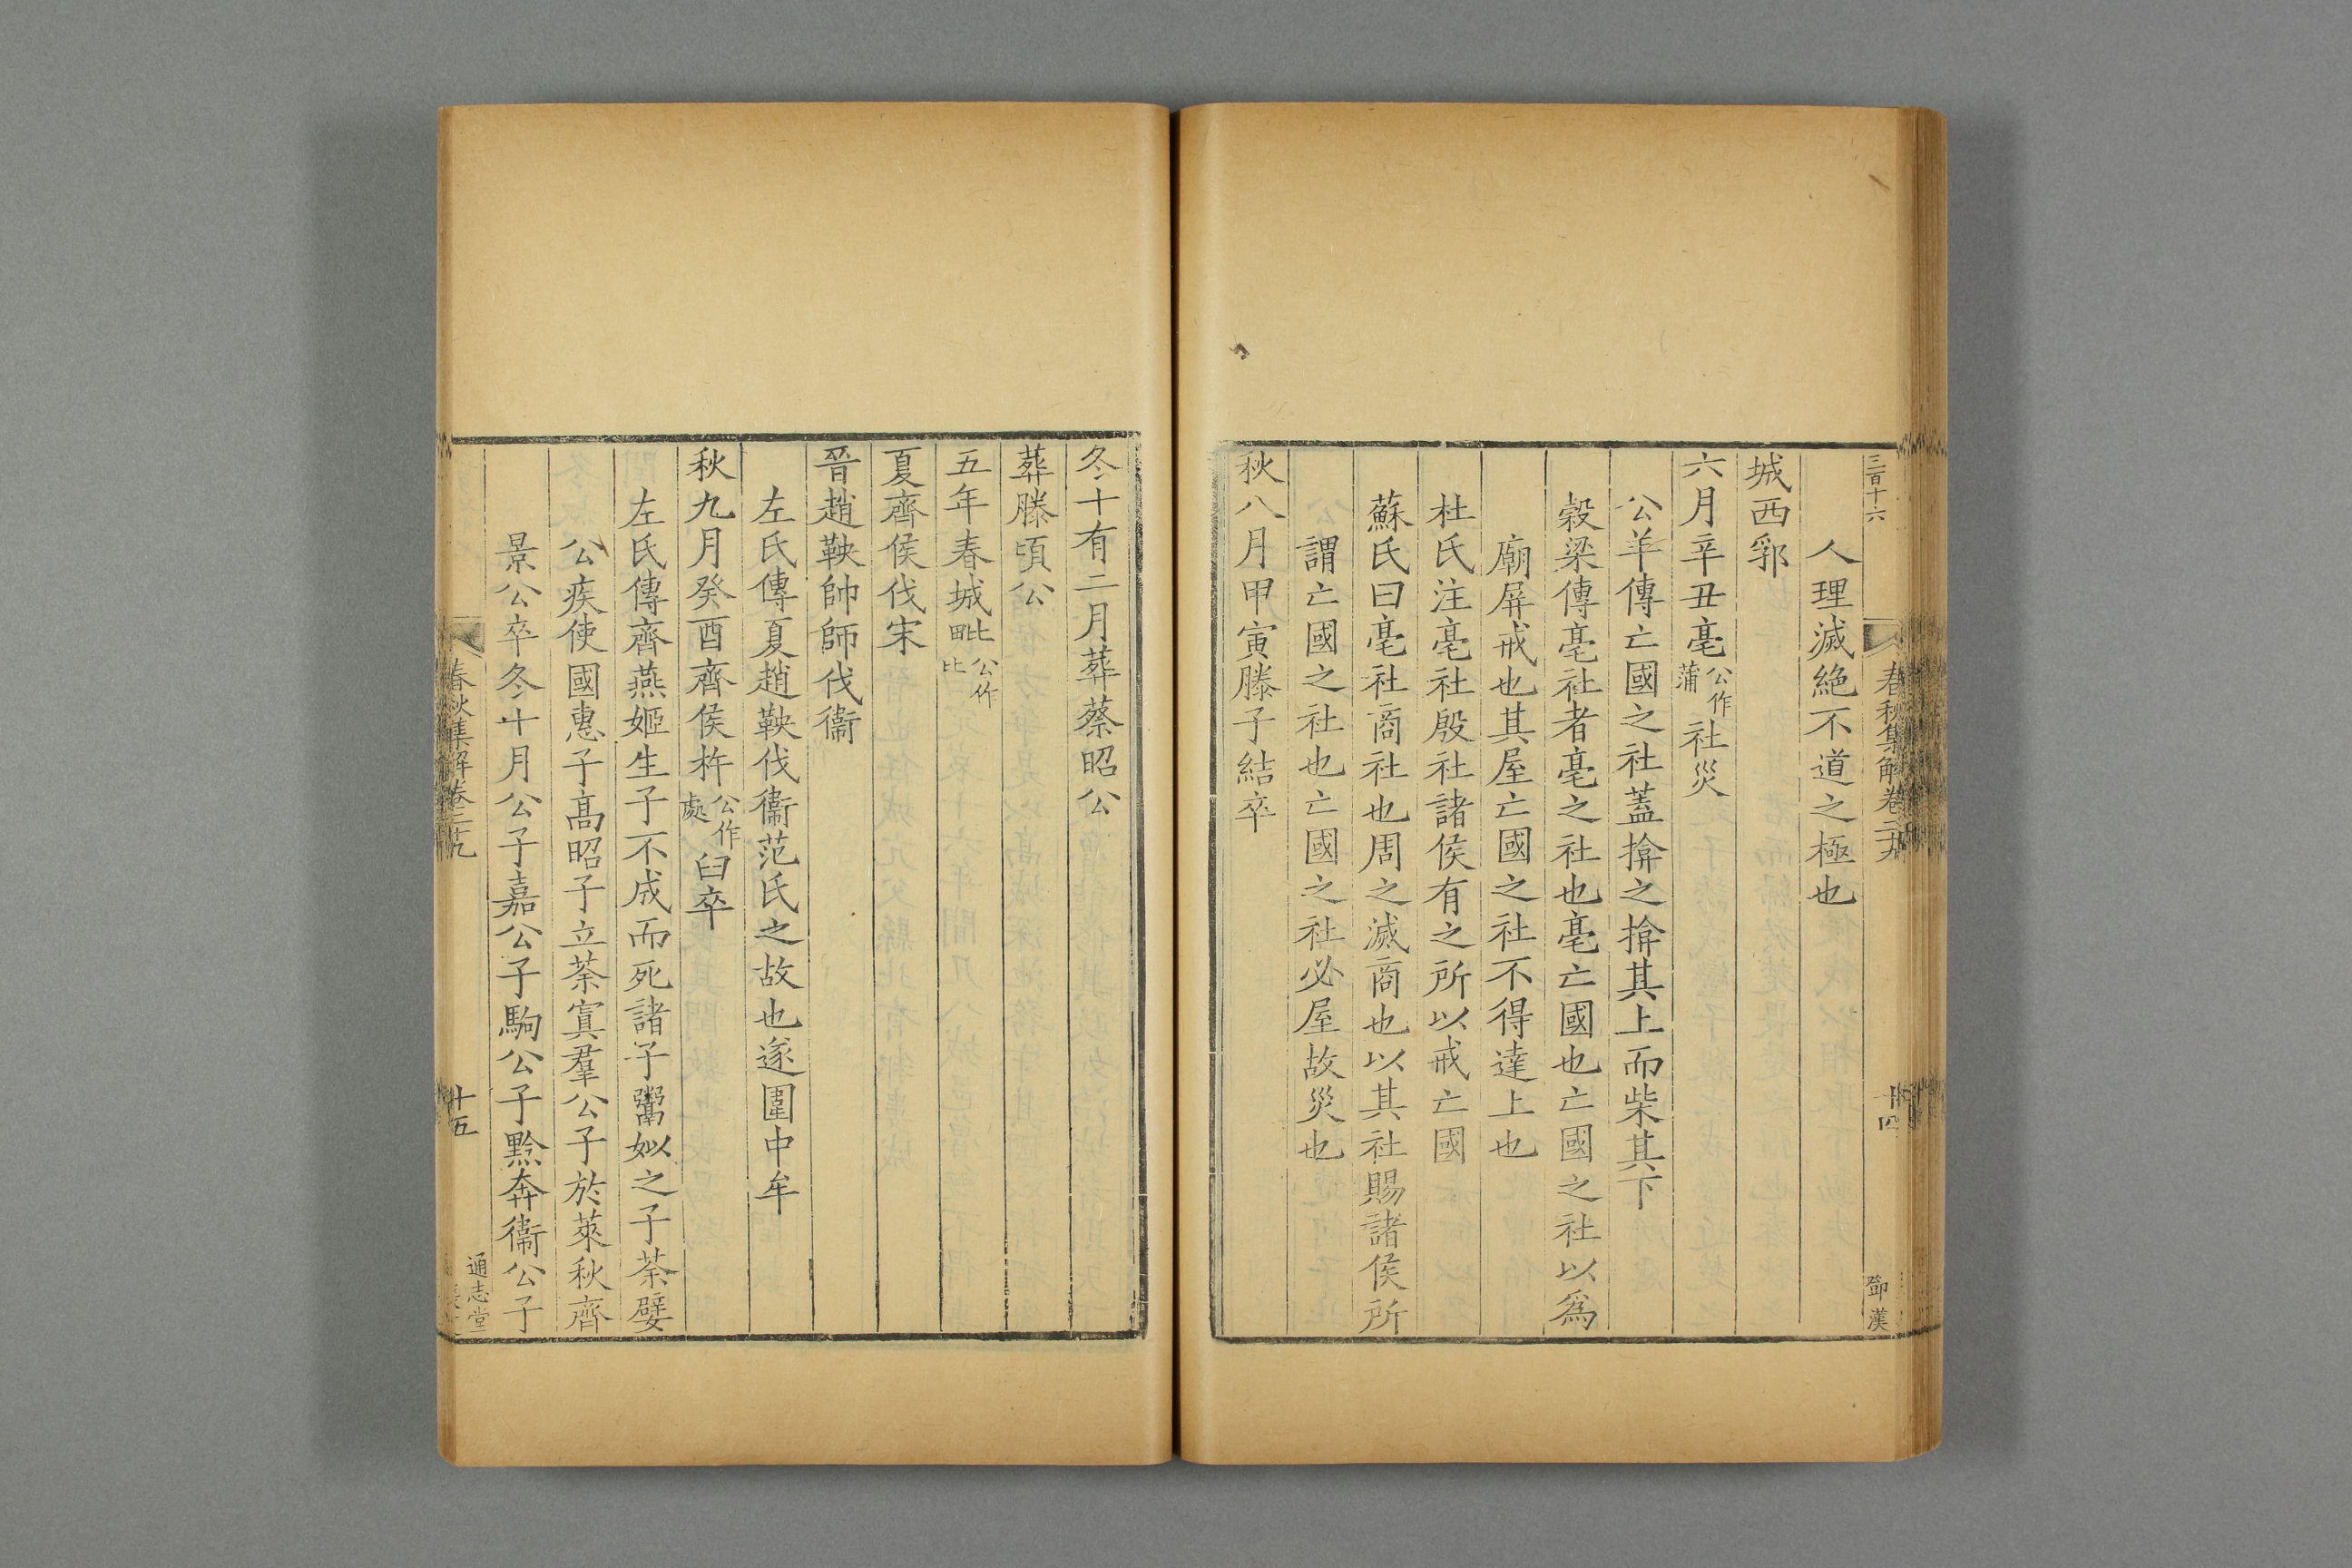 三百十六
春秋集解卷二十九
十四
鄧漢
人理滅絶不道之極也
城西郛
六月辛丑亳公作蒲社災
公羊傳亡國之社蓋揜之揜其上而柴其下
榖梁傳亳社者亳之社也亳亡國也亡國之社以爲
廟屏戒也其屋亡國之社不得達上也
杜氏注亳社殷社諸侯有之所以戒亡國
蘇氏曰亳社商社也周之滅商也以其社賜諸侯所
謂亡國之社也亡國之社必屋故災也
秋八月甲寅滕子結卒
冬十有二月葬蔡昭公
葬滕頃公
五年春城毗公作比
夏齊侯伐宋
晉趙鞅帥師伐衞
左氏傳夏趙鞅伐衞范氏之故也遂圍中牟
秋九月癸酉齊侯杵公作處臼卒
左氏傳齊燕姬生子不成而死諸子鬻姒之子荼嬖
公疾使國惠子高昭子立荼寘羣公子於萊秋齊
景公卒冬十月公子嘉公子駒公子黔奔衞公子
春秋集解卷二十九
十五
通志堂